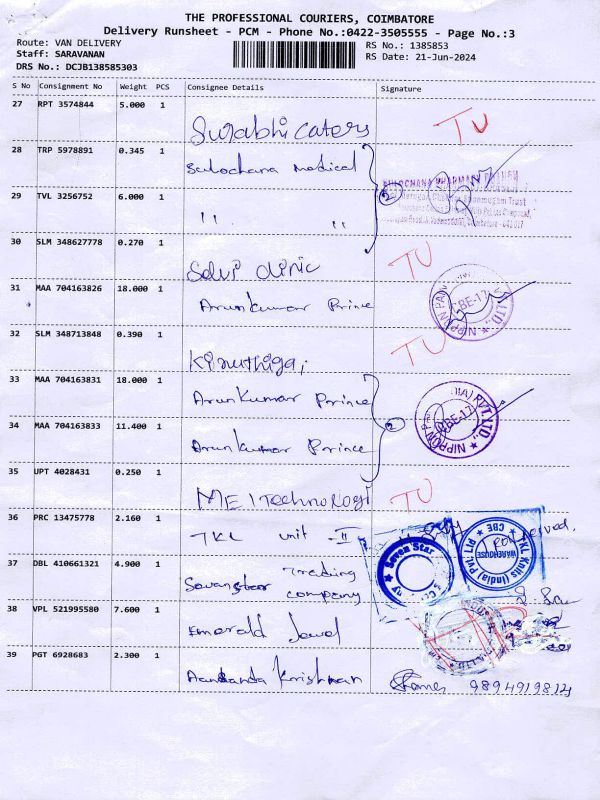 THE PROFESSIONAL COURIERS, COIMBATORE
Delivery Runsheet - PCM - Phone No.:0422-3505555 - Page No.:3
Route: VAN DELIVERY
RS No.: 1385853
Staff: SARAVANAN
RS Date: 21-Jun-2024
DRS No.: DCJB138585303
S No Consignment No Weight PCS Consignee Details Signature
27 RPT 3574844 5.000 1
Surabhi Caters TU
28 TRP 5978891 0.345 1
Sulochana Medical
29 TVL 3256752 6.000 1 2
" "
30 SLM 348627778 0.270 1
Selvi clinic TU
31 MAA 704163826 18.000 1
Arunkumar Prince CBE-17
32 SLM 348713848 0.390 1
Kiruthiga TU
33 MAA 704163831 18.000 1
Arunkumar Prince
34 MAA 704163833 11.400 1 2 CBE-17
Arunkumar Prince NIPPON PVT. LTD.
35 UPT 4028431 0.250 1
MEI Technologi TU
36 PRC 13475778 2.160 1
TKL unit - II
TKL Knits (India) Pvt. Ltd. WAREHOUSE CBE
37 DBL 410661321 4.900 1
Sevanstar Trading company
Seven Star
38 VPL 521995580 7.600 1
Emerald Jewel
39 PGT 6928683 2.300 1
Krishnan